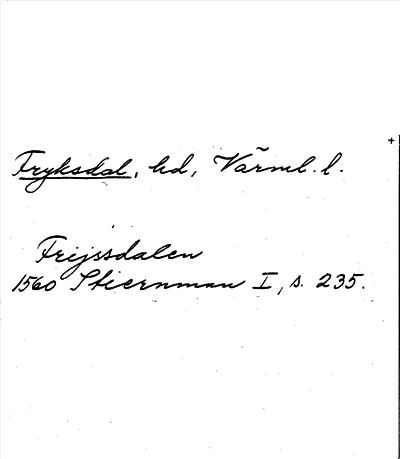 Fryksdal, hd, Värml. l.
Frijssdalen
1560 Stiernman I, s. 235.